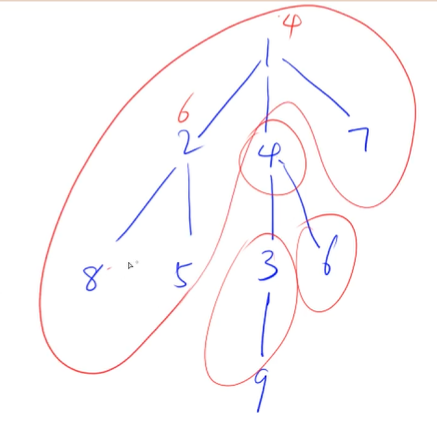 4
1
6
2 4 7
8 5 3 6
9